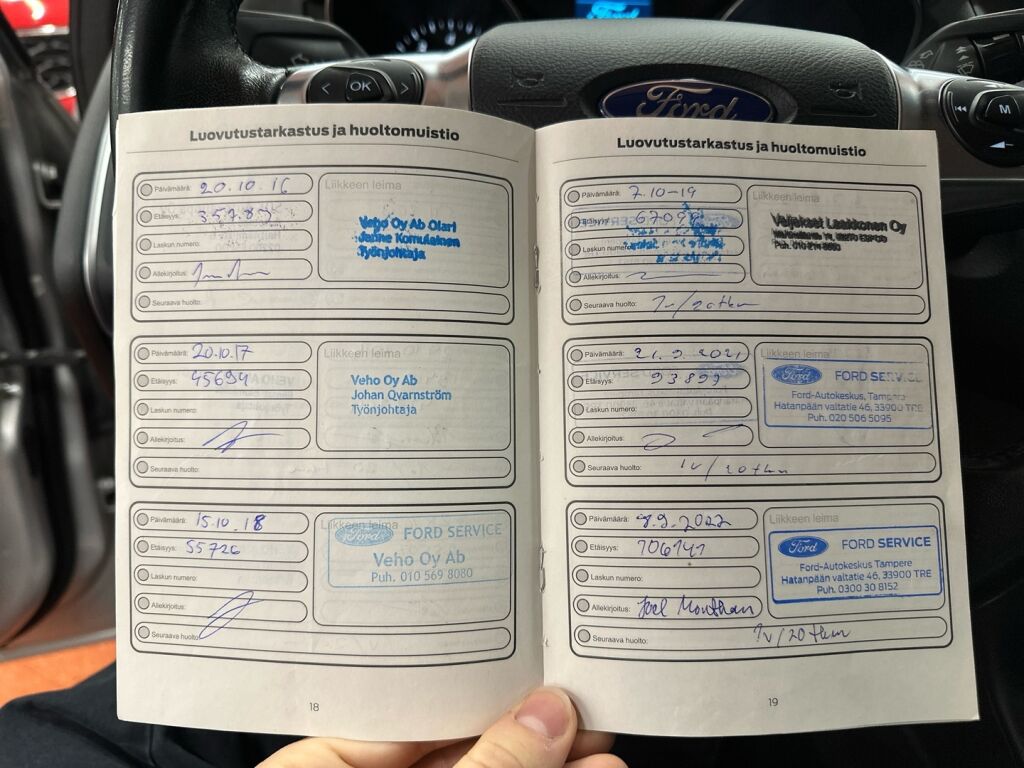 OK
M
Ford
Luovutustarkastus ja huoltomuistio
Päivämäärä: 20.10.16
Liikkeen leima
Etäisyys:
Laskun numero:
Allekirjoitus:
Seuraava huolto:
Veho Oy Ab Olari
Janne Komulainen
Työnjohtaja
Päivämäärä: 20.10.17
Liikkeen leima
Etäisyys: 45694
Laskun numero:
Allekirjoitus:
Seuraava huolto:
Veho Oy Ab
Johan Qvarnström
Työnjohtaja
Päivämäärä: 15.10.18
Liikkeen leima
Etäisyys: 55726
Laskun numero:
Allekirjoitus:
Seuraava huolto:
Ford FORD SERVICE
Veho Oy Ab
Puh. 010 569 8080
18
Luovutustarkastus ja huoltomuistio
Päivämäärä: 7.10-19
Liikkeen leima
Etäisyys:
Laskun numero:
Allekirjoitus:
Seuraava huolto: 1v/20tkm
Veljekset Laakkonen Oy
Päivämäärä: 21.9.2021
Liikkeen leima
Etäisyys: 93899
Laskun numero:
Allekirjoitus:
Seuraava huolto: 1v/20tkm
Ford FORD SERVICE
Ford-Autokeskus, Tampere
Hatanpään valtatie 46, 33900 TRE
Puh. 020 506 5095
Päivämäärä: 9.2022
Liikkeen leima
Etäisyys: 106141
Laskun numero:
Allekirjoitus: Joel
Seuraava huolto: 1v/20tkm
Ford FORD SERVICE
Ford-Autokeskus Tampere
Hatanpään valtatie 46, 33900 TRE
Puh. 0300 30 8152
19